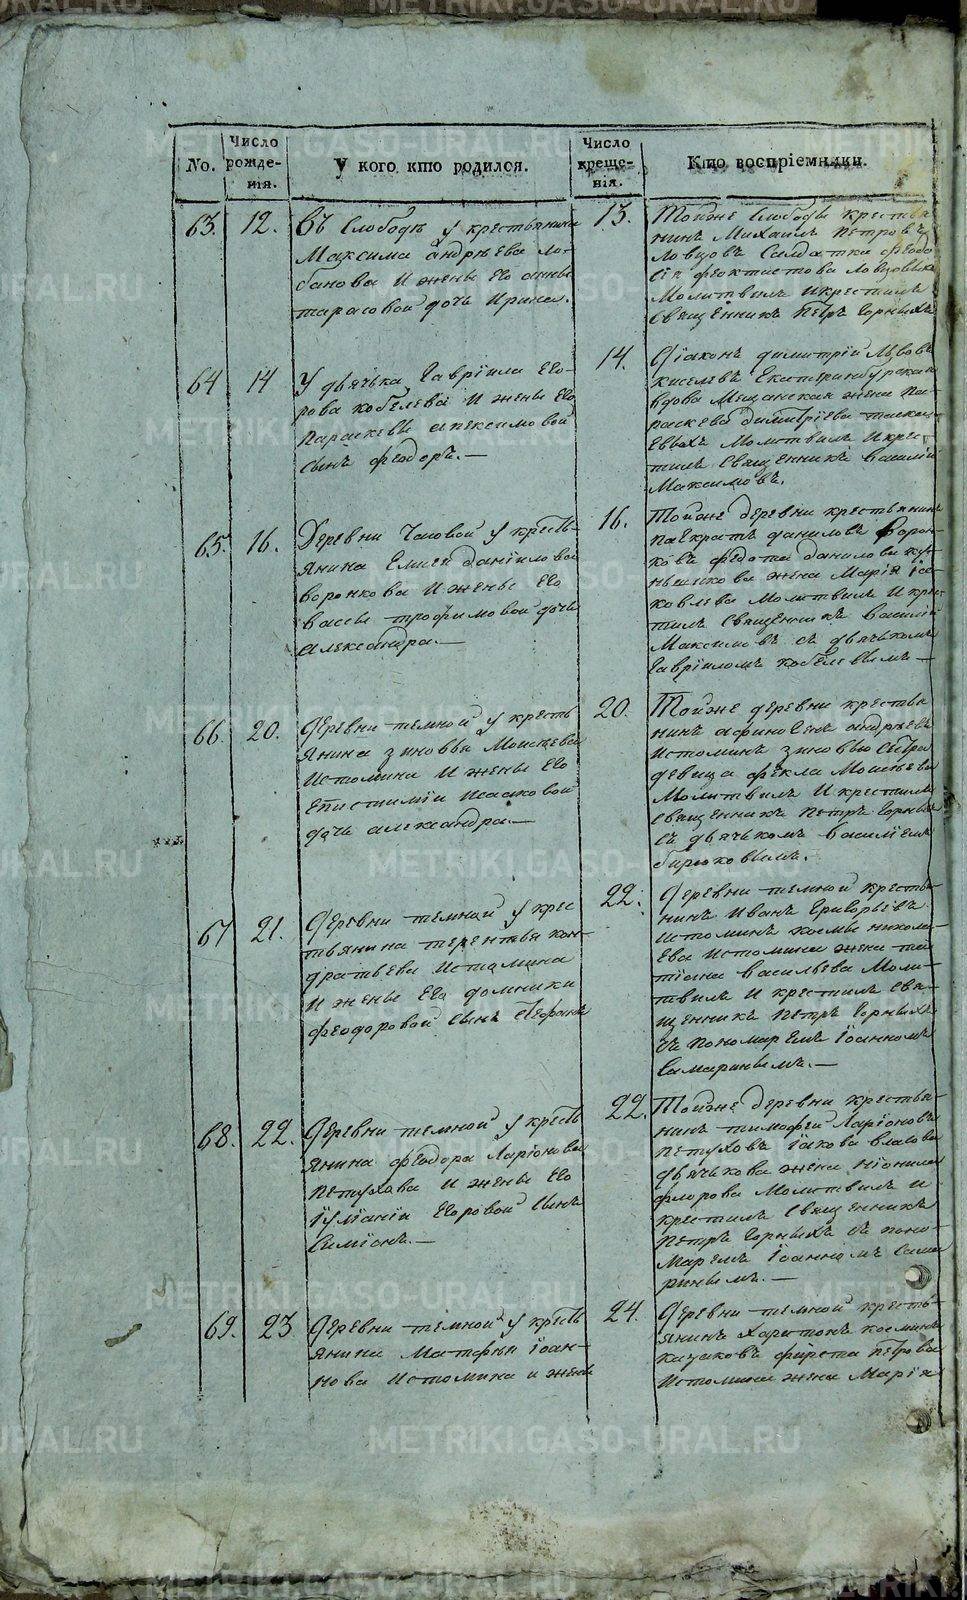 No.
Число рожде-нія.
У кого кто родился.
Число креще-нія.
Кто воспріемники.
63.
12.
Въ Слободѣ у крестьянина
Максима Андрѣева Ло-
банова И жены Его Анны
Тарасовой дочь Ирина.
13.
Тойже Слободы крестья
нинъ Михаилъ Петровъ
Ловцовъ Салдатка Феодо
сія Феоктистова Ловцовыхъ
Молитвилъ Икрестилъ
Священникъ Петръ Горныхъ
64
14
У дьячька Гавріила Его-
рова кобелева И жены Его
Параскевы Алексимовой
Сынъ Феодоръ.—
14.
Діаконъ Димитрій Львовъ
киселевъ Екатеринбургская
вдова Мещанская жена Па
раскева Димитріева
Молитвилъ Икрес-
тилъ Священникъ Василій
Максимовъ.
65.
16.
Деревни Чаловой у кресть-
янина Елисея Даніилова
воронкова И жены Его
Вассы Трофимовой дочь
Александра.—
16.
Тойже деревни крестьянинъ
Панкратъ Даниловъ Ворон-
ковъ Федота Данилова
жена Марія Іа-
ковлева Молитвилъ И крес
тилъ Священникъ Василій
Максимовъ съ дьячькомъ
Гавріиломъ кобелевымъ—
66.
20.
Деревни темной у кресть
янина зиновья Моисѣева
Истомина И жены Его
Епистиміи Исааковой
дочь Александра.—
20.
Тойже деревни крестья
нинъ Андрѣевъ
Истоминъ зиновью
девица Фекла Моисѣева
Молитвилъ И крестилъ
Священникъ Петръ Горныхъ
съ дьячькомъ Василіемъ
бирюковымъ.
67
21.
Деревни темной у крес
тьянина терентья кон-
дратьева Истомина
И жены Его домники
Феодоровой Сынъ Стефанъ
22.
Деревни темной крестья-
нинъ Иванъ Григорьевъ
Истоминъ космы никола-
Ева Истомина жена та
тіана Васильева Моли-
твилъ И крестилъ Свя-
щенникъ Петръ Горныхъ
съ Пономаремъ Іоанномъ
Самаринымъ.—
68.
22.
Деревни темной у кресть
янина Феодора Ларіонова
Петухова И жены Его
Іуліаніи Егоровой Сынъ
Симіонъ.—
22.
Тойже деревни крестья-
нинъ тимофей Ларіоновъ
Петуховъ Іакова власова
дьячькова жена Ніонила
флорова Молитвилъ и
крестилъ Священникъ
Петръ Горныхъ съ поно-
маремъ Іоанномъ Сама
ринымъ.—
69.
23
Деревни темной у кресть
янина Матфѣя Іоан-
нова Истомина и жены
24.
Деревни темной кресть-
янинъ Харитонъ косминъ
казаковъ фирста Петрова
Истомина жена Марія
METRIKI.GASO-URAL.RU